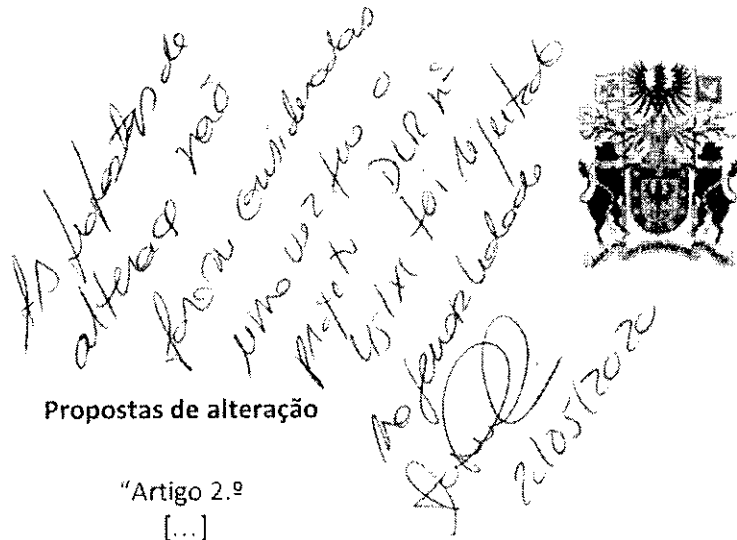 As propostas de
alteração não
foram consideradas
uma vez que o
projeto DLR nº
45/XI foi rejeitado
na generalidade
2/05/2020
Propostas de alteração
“Artigo 2.º
[...]